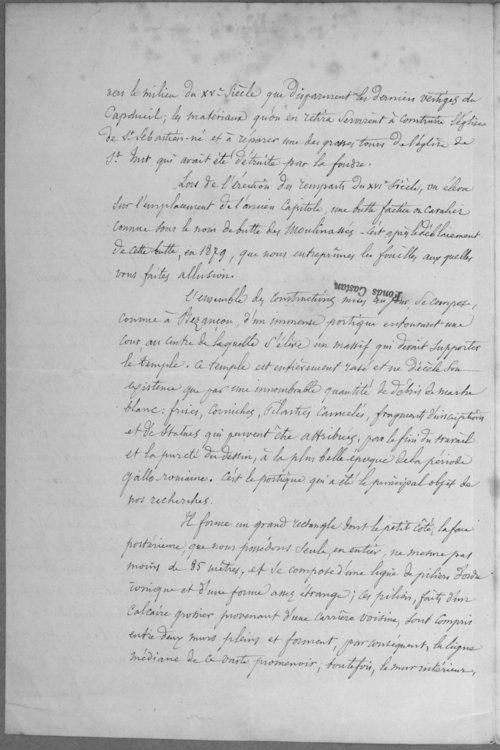 vers le milieu du XVe Siècle que disparurent les derniers vestiges du
Capdueil; les matériaux qu'on en retira servirent à construire l'église
de St Sébastien-né et à réparer une des grosses tours de l'église de
St Just qui avait été détruite par la foudre.
Lors de l'érection des remparts du XVIe Siècle, on éleva
sur l'emplacement de l'ancien Capitole, une butte factice ou cavalier
connue sous le nom de butte des Moulinassès - C'est après le déblaiement
de cette butte, en 1879, que nous entreprîmes les fouilles auxquelles
vous faites allusion.
Fonds Castan
L'ensemble des constructions mises au jour se compose,
comme à Bezançon, d'un immense portique entourant une
cour au centre de laquelle s'élève un massif qui devait supporter
le temple. Ce temple est entièrement rasé et ne décèle son
existence que par une innombrable quantité de débris de marbre
blanc: frises, corniches, pilastres cannelés, fragments d'inscriptions
et de statues qui peuvent être attribués, par le fini du travail
et la pureté du dessin, à la plus belle époque de la période
gallo-romaine. C'est le portique qui a été le principal objet de
nos recherches.
Il forme un grand rectangle dont le petit côté, la face
postérieure, que nous possédons seule, en entier, ne mesure pas
moins de 85 mètres, et se compose d'une ligne de piliers d'ordre
ionique et d'une forme assez étrange; ces piliers, faits d'un
calcaire grossier provenant d'une carrière voisine, sont compris
entre deux murs pleins et forment, par conséquent, la ligne
médiane de ce vaste promenoir, toutefois, le mur intérieur,